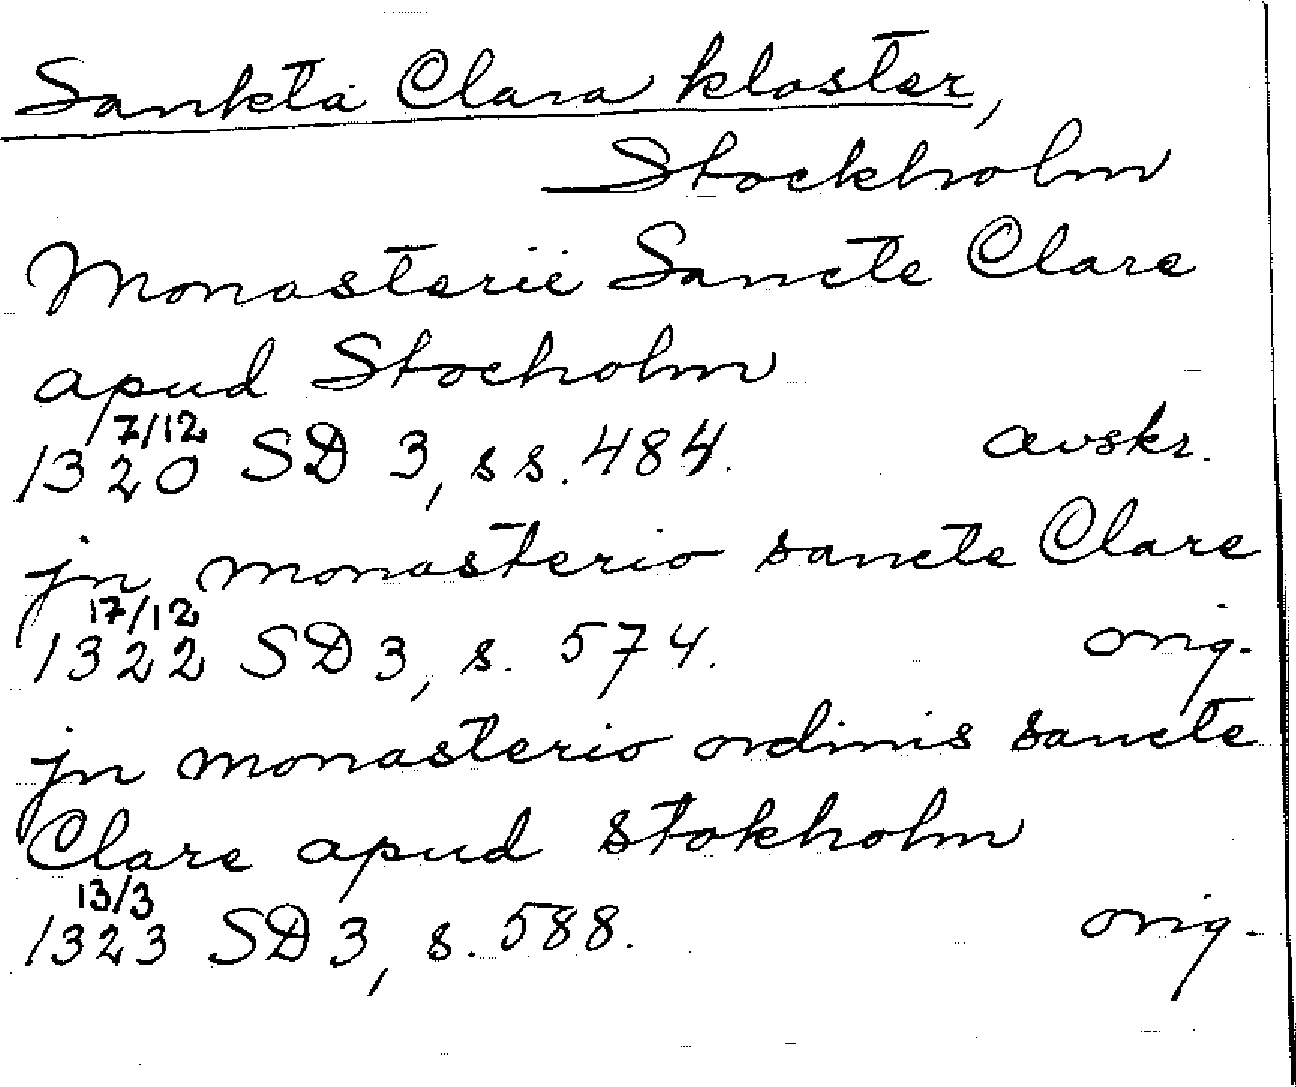 Sankta Clara kloster,
Stockholm
Monasterii Sancte Clare
apud Stocholm
7/12
1320 SD 3, ss. 484. avskr.
jn monasterio sancte Clare
17/12
1322 SD 3, s. 574. orig.
jn monasterio ordinis sancte
Clare apud stokholm
13/3
1323 SD 3, s. 588. orig.